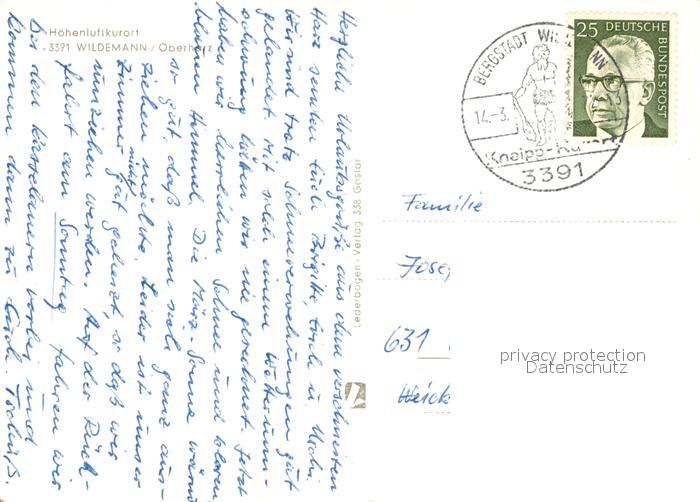 Höhenluftkurort
3391 WILDEMANN / Oberharz
Herzliche Urlaubsgrüße aus dem verschneiten
Harz senden Euch Brigitte, Erich u. Uschi.
Wir sind trotz Schneeverwehungen gut
gelandet. Mit solch einem Wetterum-
schwung hätten wir nie gerechnet. Jetzt
haben wir herrlichen Schnee und klaren
blauen Himmel. Die März-Sonne wärmt
so gut, daß man sich ganz aus-
ziehen möchte. Leider ist unser
Zimmer nicht gut geheizt, so daß wir
umziehen werden. Auf der Rück-
fahrt am Sonntag fahren wir
bei den Kasselanern vorbei und
kommen dann zu Euch.
Lederbogen-Verlag 338 Goslar
BERGSTADT WILDEMANN
14.-3.
Kneipp-Kurort
3391
25 DEUTSCHE
BUNDESPOST
Familie
Josef
631
privacy protection
Datenschutz